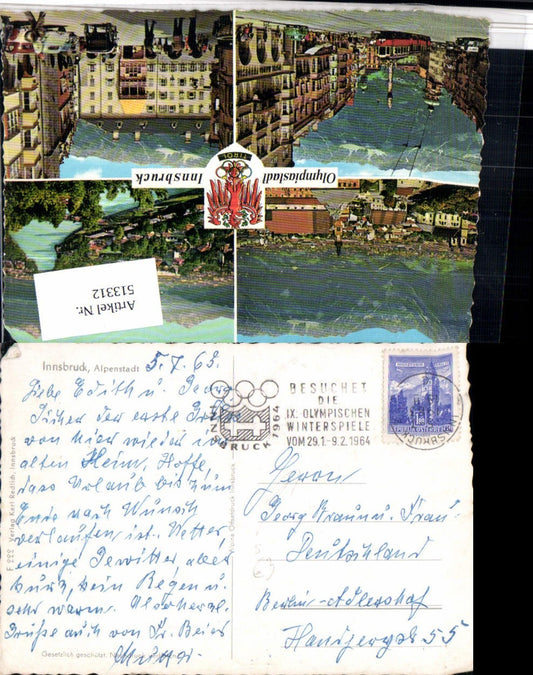 Olympiastadt Innsbruck
TIROL
Artikel Nr.
513312
Innsbruck, Alpenstadt
5.7.63.
Liebe Edith u. Georg
von hier wieder im
alten Heim, Hoffe,
dass Urlaub bis zum
Ende nach Wunsch
verlaufen ist. Wetter,
einige Gewitter, aber
kurz, kein Regen u.
sehr warm. Also herzl.
Grüße auch von Fr. Beier
BESUCHET
DIE
IX. OLYMPISCHEN
WINTERSPIELE
VOM 29.1.-9.2.1964
INNSBRUCK 1964
REPUBLIK ÖSTERREICH
Herrn
Georg Braun u. Frau
Deutschland
Berlin-Adlershof
55
F 222 Verlag Karl Redlich, Innsbruck
Gesetzlich geschützt.